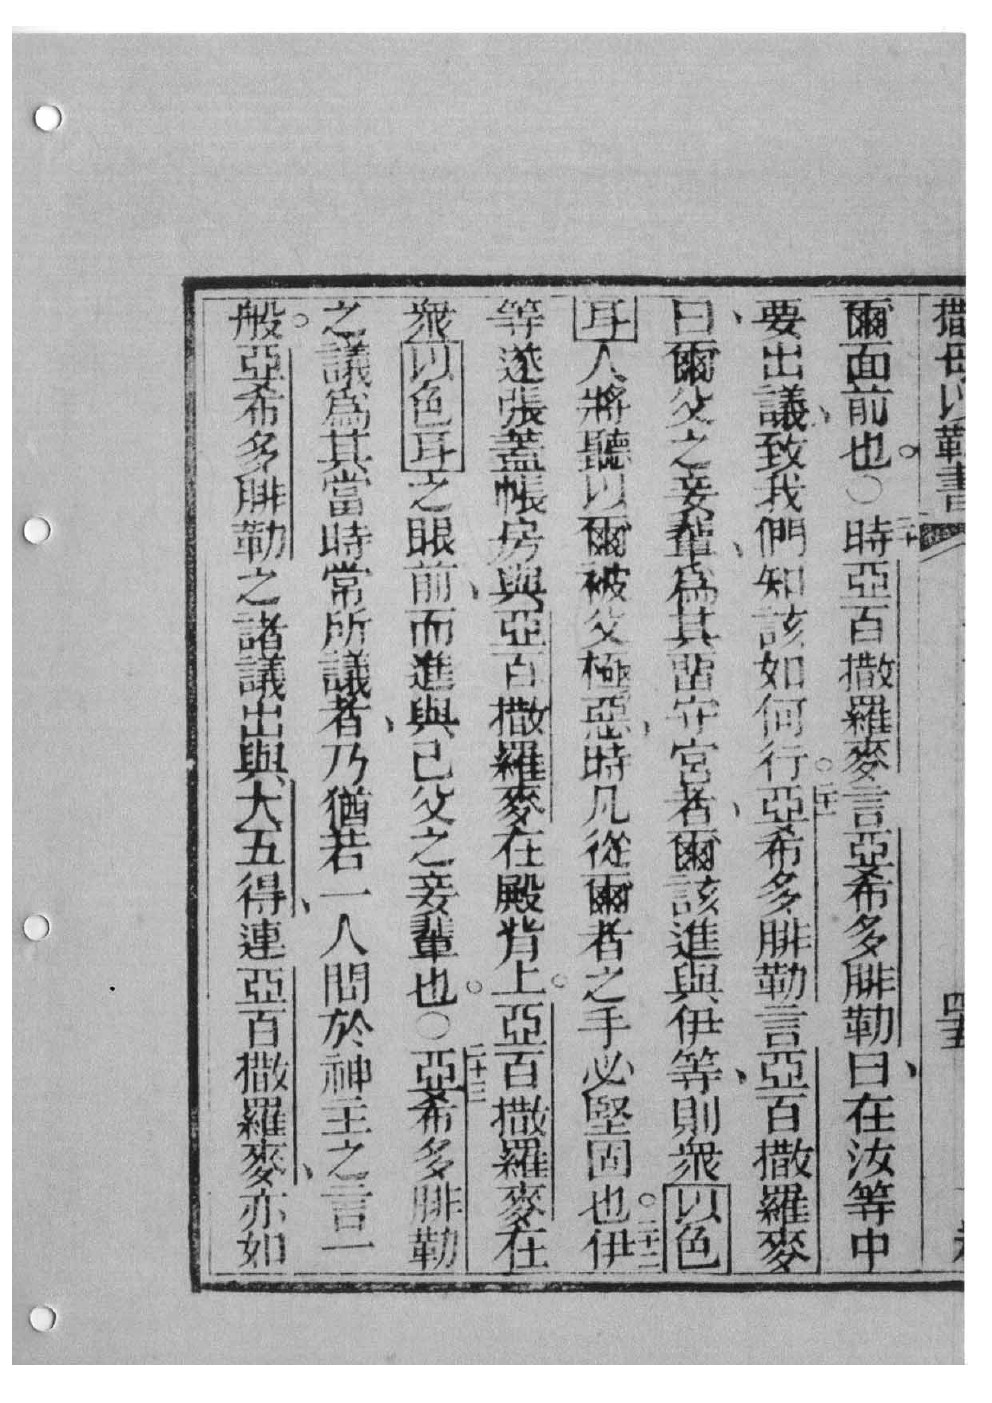 撒母以勒書
四五
爾面前也。○二十時亞百撒羅麥言亞希多腓勒曰、在汝等中
要出議、致我們知該如何行。二十一亞希多腓勒言亞百撒羅麥
曰、爾父之妾輩、爲其留守宮者、爾該進與伊等、則衆以色
耳人將聽以爾被父極惡、時凡從爾者之手必堅固也。二十二伊
等遂張蓋帳房與亞百撒羅麥在殿背上。亞百撒羅麥在
衆以色耳之眼前、而進與己父之妾輩也。○二十三亞希多腓勒
之議爲其當時常所議者、乃猶若一人問於神主之言一
般。亞希多腓勒之諸議出與大五得、連亞百撒羅麥、亦如